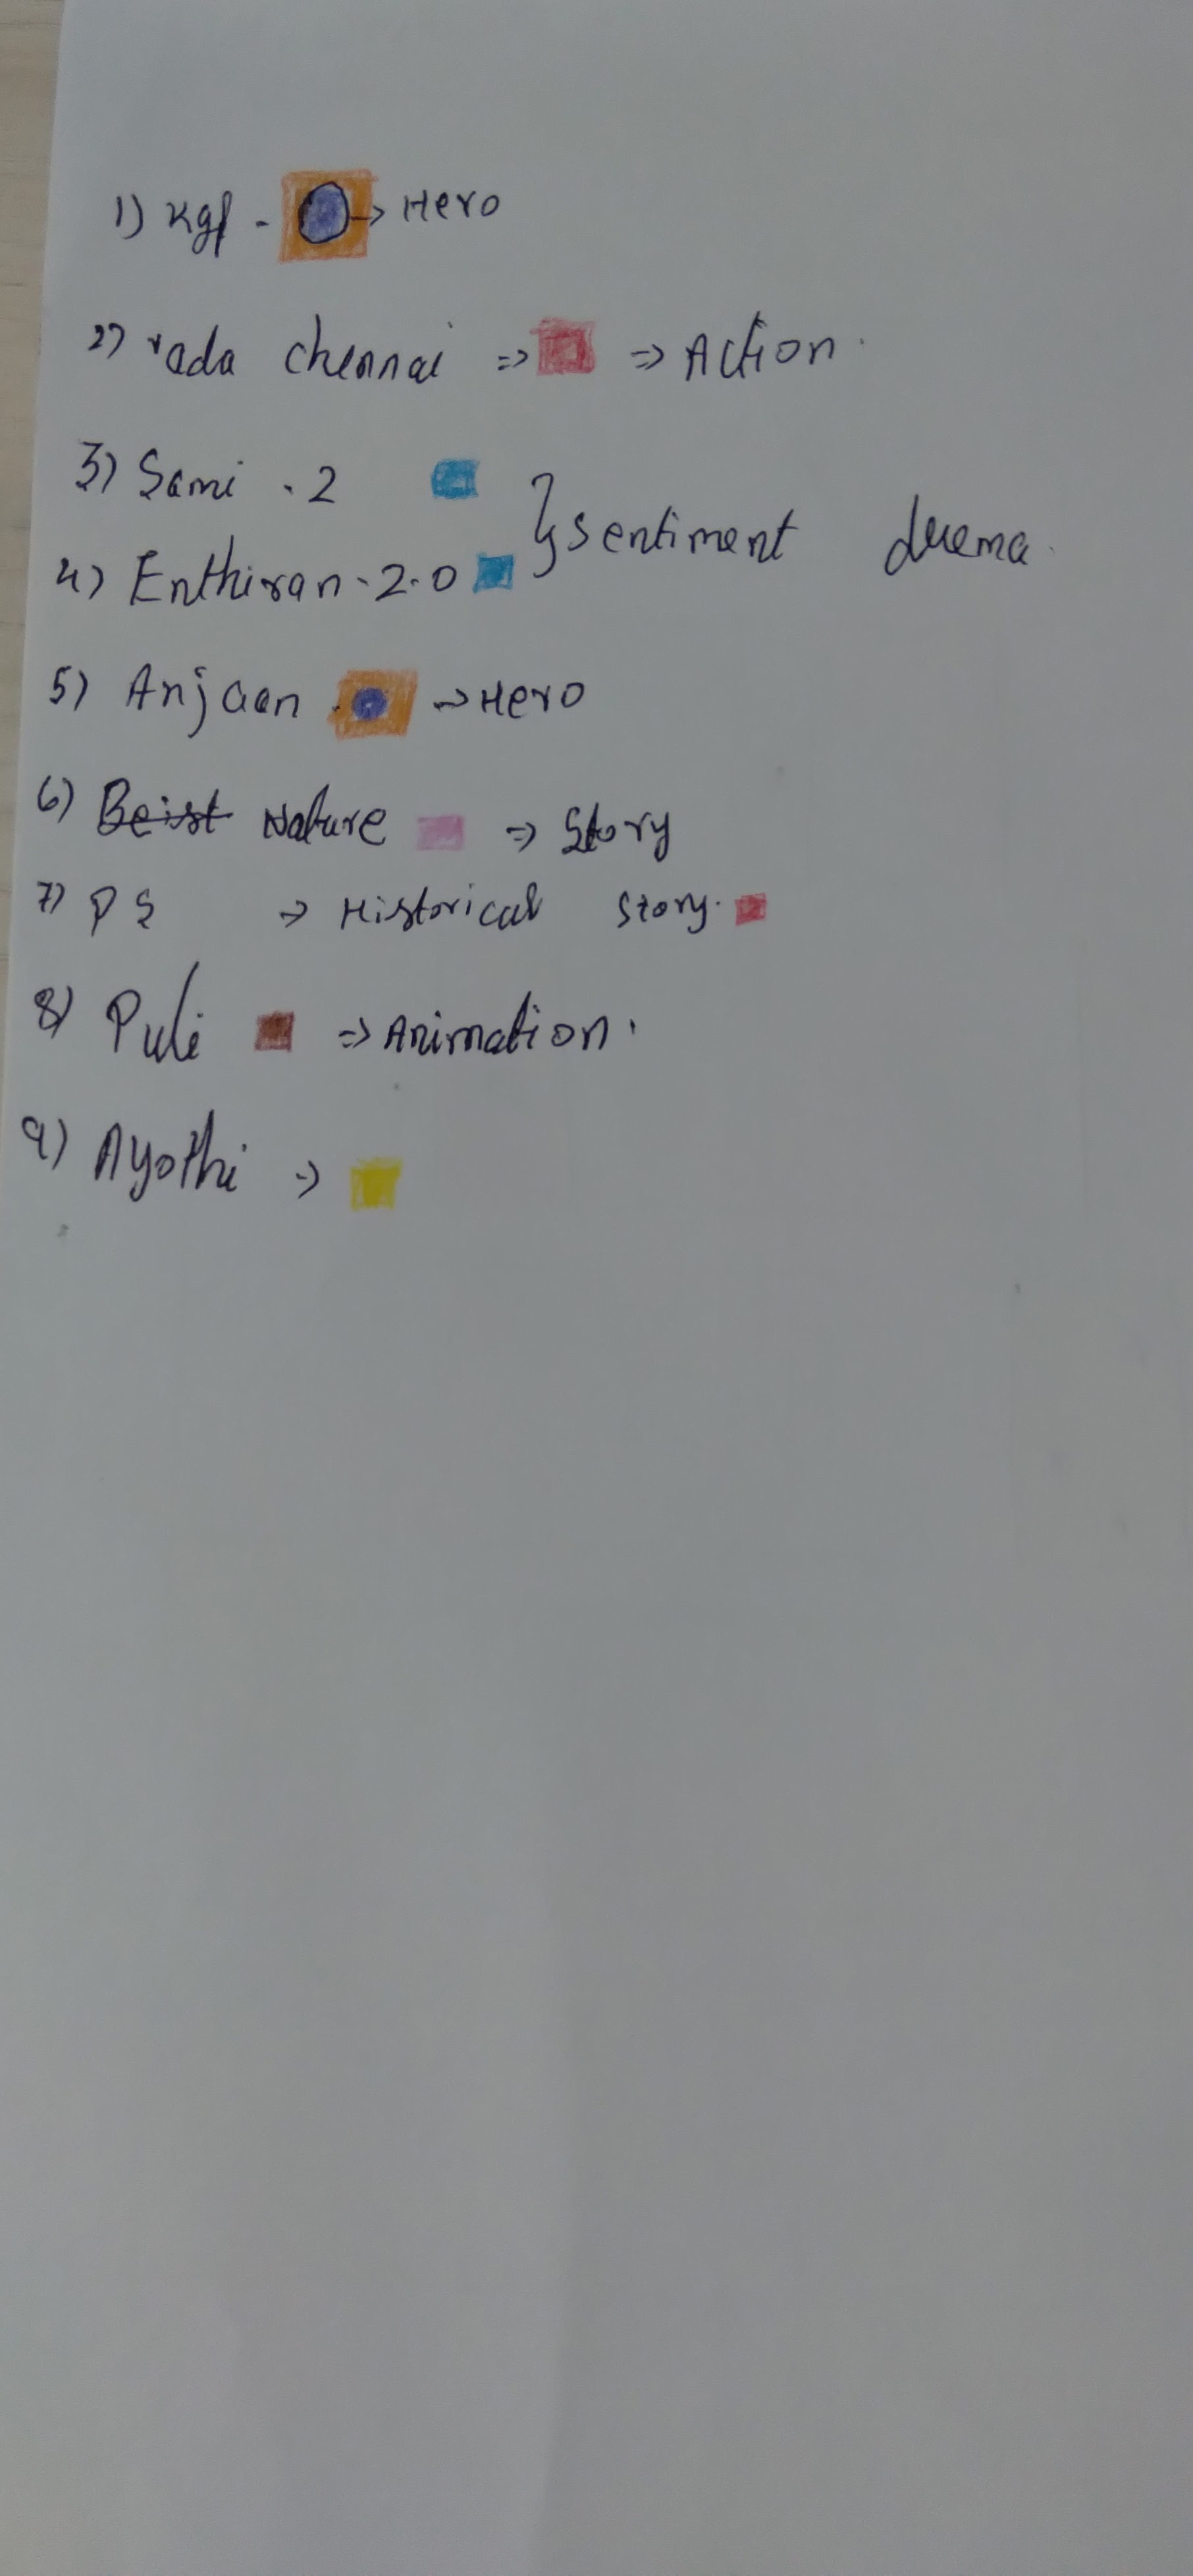 1) Kgf - → Hero
2) vada chennai ⇒ ⇒ Action.
3) Sami . 2
} sentiment drema.
4) Enthiran . 2.0
5) Anjaan . → Hero
6) Beist Nature ⇒ Story
7) PS ⇒ Historical Story.
8) Puli ⇒ Animation.
9) Ayothi ⇒